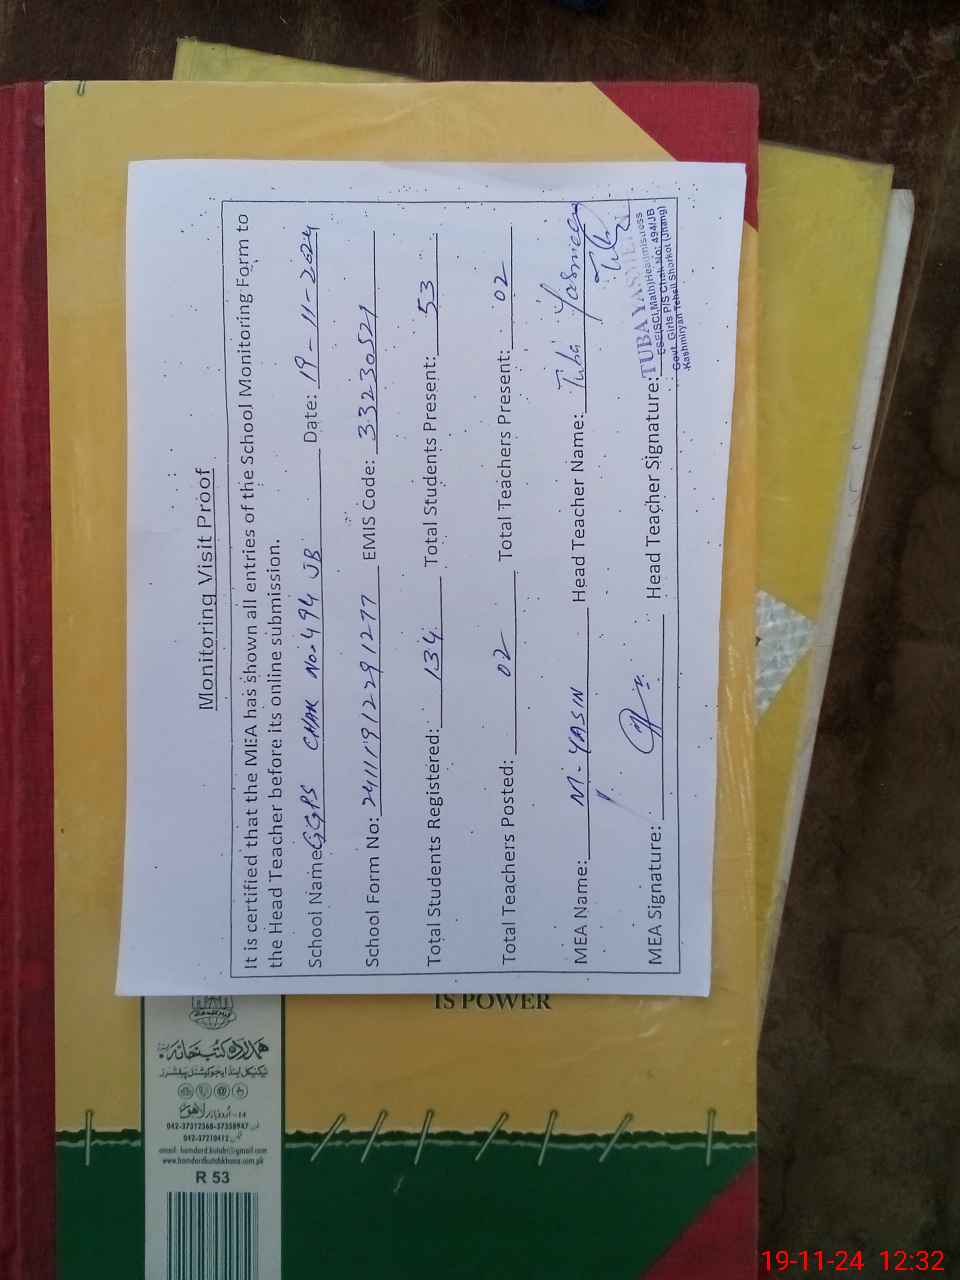 Monitoring Visit Proof
It is certified that the MEA has shown all entries of the School Monitoring Form to
the Head Teacher before its online submission.
School Name GGPS CHAK No. 494 JB Date: 19-11-2024
School Form No: 24111912291277 EMIS Code: 33230521
Total Students Registered: 134 Total Students Present: 53
Total Teachers Posted: 02 Total Teachers Present: 02
MEA Name: M-YASIN Head Teacher Name: Tuba Yasmeen
MEA Signature: Head Teacher Signature:
TUBA YASMEEN
ESE(SCI,Math)Headmistress
Govt. Girls P/S Chak No: 494/JB
Kashmiryan Tehsil Shorkot (Jhang)
IS POWER
ہمدرد کتب خانہ
ٹیکنیکل اینڈ ایجوکیشنل پبلشرز
14-اُردو بازار لاہور
042-37312368-37358947
042-37210412
email: hamdard.kutab@gmail.com
www.hamdardkutabkhana.com.pk
R 53
19-11-24 12:32